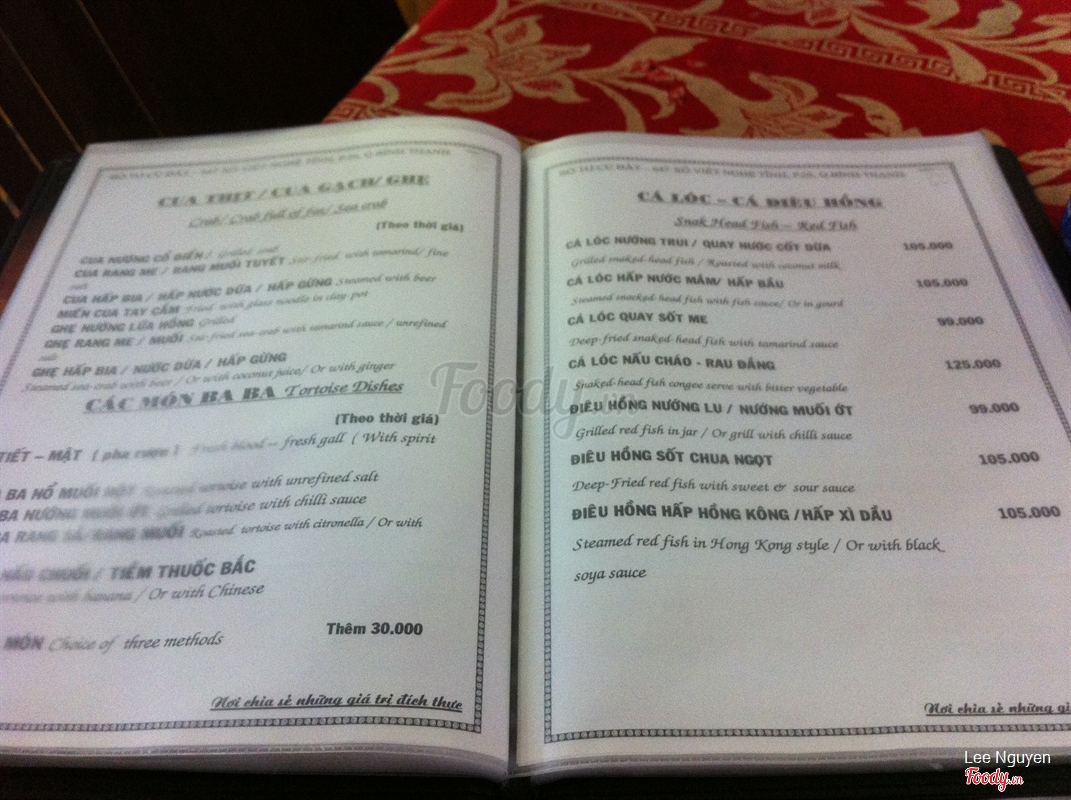 XÔ VIẾT NGHỆ TĨNH, P.25, Q.BÌNH THẠNH
CUA THỊT / CUA GẠCH/ GHẸ
Crab/ Crab full of fat/ Sea crab
(Theo thời giá)
CUA NƯỚNG CỔ ĐIỂN / Grilled crab
CUA RANG ME / RANG MUỐI TUYẾT Stir-fried with tamarind/ fine
salt
CUA HẤP BIA / HẤP NƯỚC DỪA / HẤP GỪNG Steamed with beer
MIẾN CUA TAY CẦM Fried with glass noodle in clay pot
GHẸ NƯỚNG LỬA HỒNG Grilled
GHẸ RANG ME / MUỐI Stir-fried sea-crab with tamarind sauce / unrefined
salt
GHẸ HẤP BIA / NƯỚC DỪA / HẤP GỪNG
Steamed sea-crab with beer / Or with coconut juice/ Or with ginger
CÁC MÓN BA BA Tortoise Dishes
(Theo thời giá)
TIẾT – MẬT ( pha rượu ) Fresh blood – fresh gall ( With spirit
BA NỔ MUỐI HỘT Roasted tortoise with unrefined salt
BA NƯỚNG MUỐI ỚT Grilled tortoise with chilli sauce
RANG MUỐI Roasted tortoise with citronella / Or with
NẤU CHUỐI / TIỀM THUỐC BẮC
with banana / Or with Chinese
MÓN Choice of three methods
Thêm 30.000
Nơi chia sẻ những giá trị đích thực
XÔ VIẾT NGHỆ TĨNH, P.25, Q.BÌNH THẠNH
CÁ LÓC – CÁ DIÊU HỒNG
Snak Head Fish – Red Fish
CÁ LÓC NƯỚNG TRUI / QUAY NƯỚC CỐT DỪA 105.000
Grilled snaked-head fish / Roasted with coconut milk
CÁ LÓC HẤP NƯỚC MẮM/ HẤP BẦU 105.000
Steamed snacked-head fish with fish sauce/ Or in gourd
CÁ LÓC QUAY SỐT ME 99.000
Deep-fried snaked-head fish with tamarind sauce
CÁ LÓC NẤU CHÁO - RAU ĐẮNG 125.000
Snaked-head fish congee serve with bitter vegetable
ĐIÊU HỒNG NƯỚNG LU / NƯỚNG MUỐI ỚT 99.000
Grilled red fish in jar / Or grill with chilli sauce
ĐIÊU HỒNG SỐT CHUA NGỌT 105.000
Deep-Fried red fish with sweet & sour sauce
ĐIÊU HỒNG HẤP HỒNG KÔNG /HẤP XÌ DẦU 105.000
Steamed red fish in Hong Kong style / Or with black
soya sauce
Nơi chia sẻ những
Foody.vn
Lee Nguyen
Foody.vn